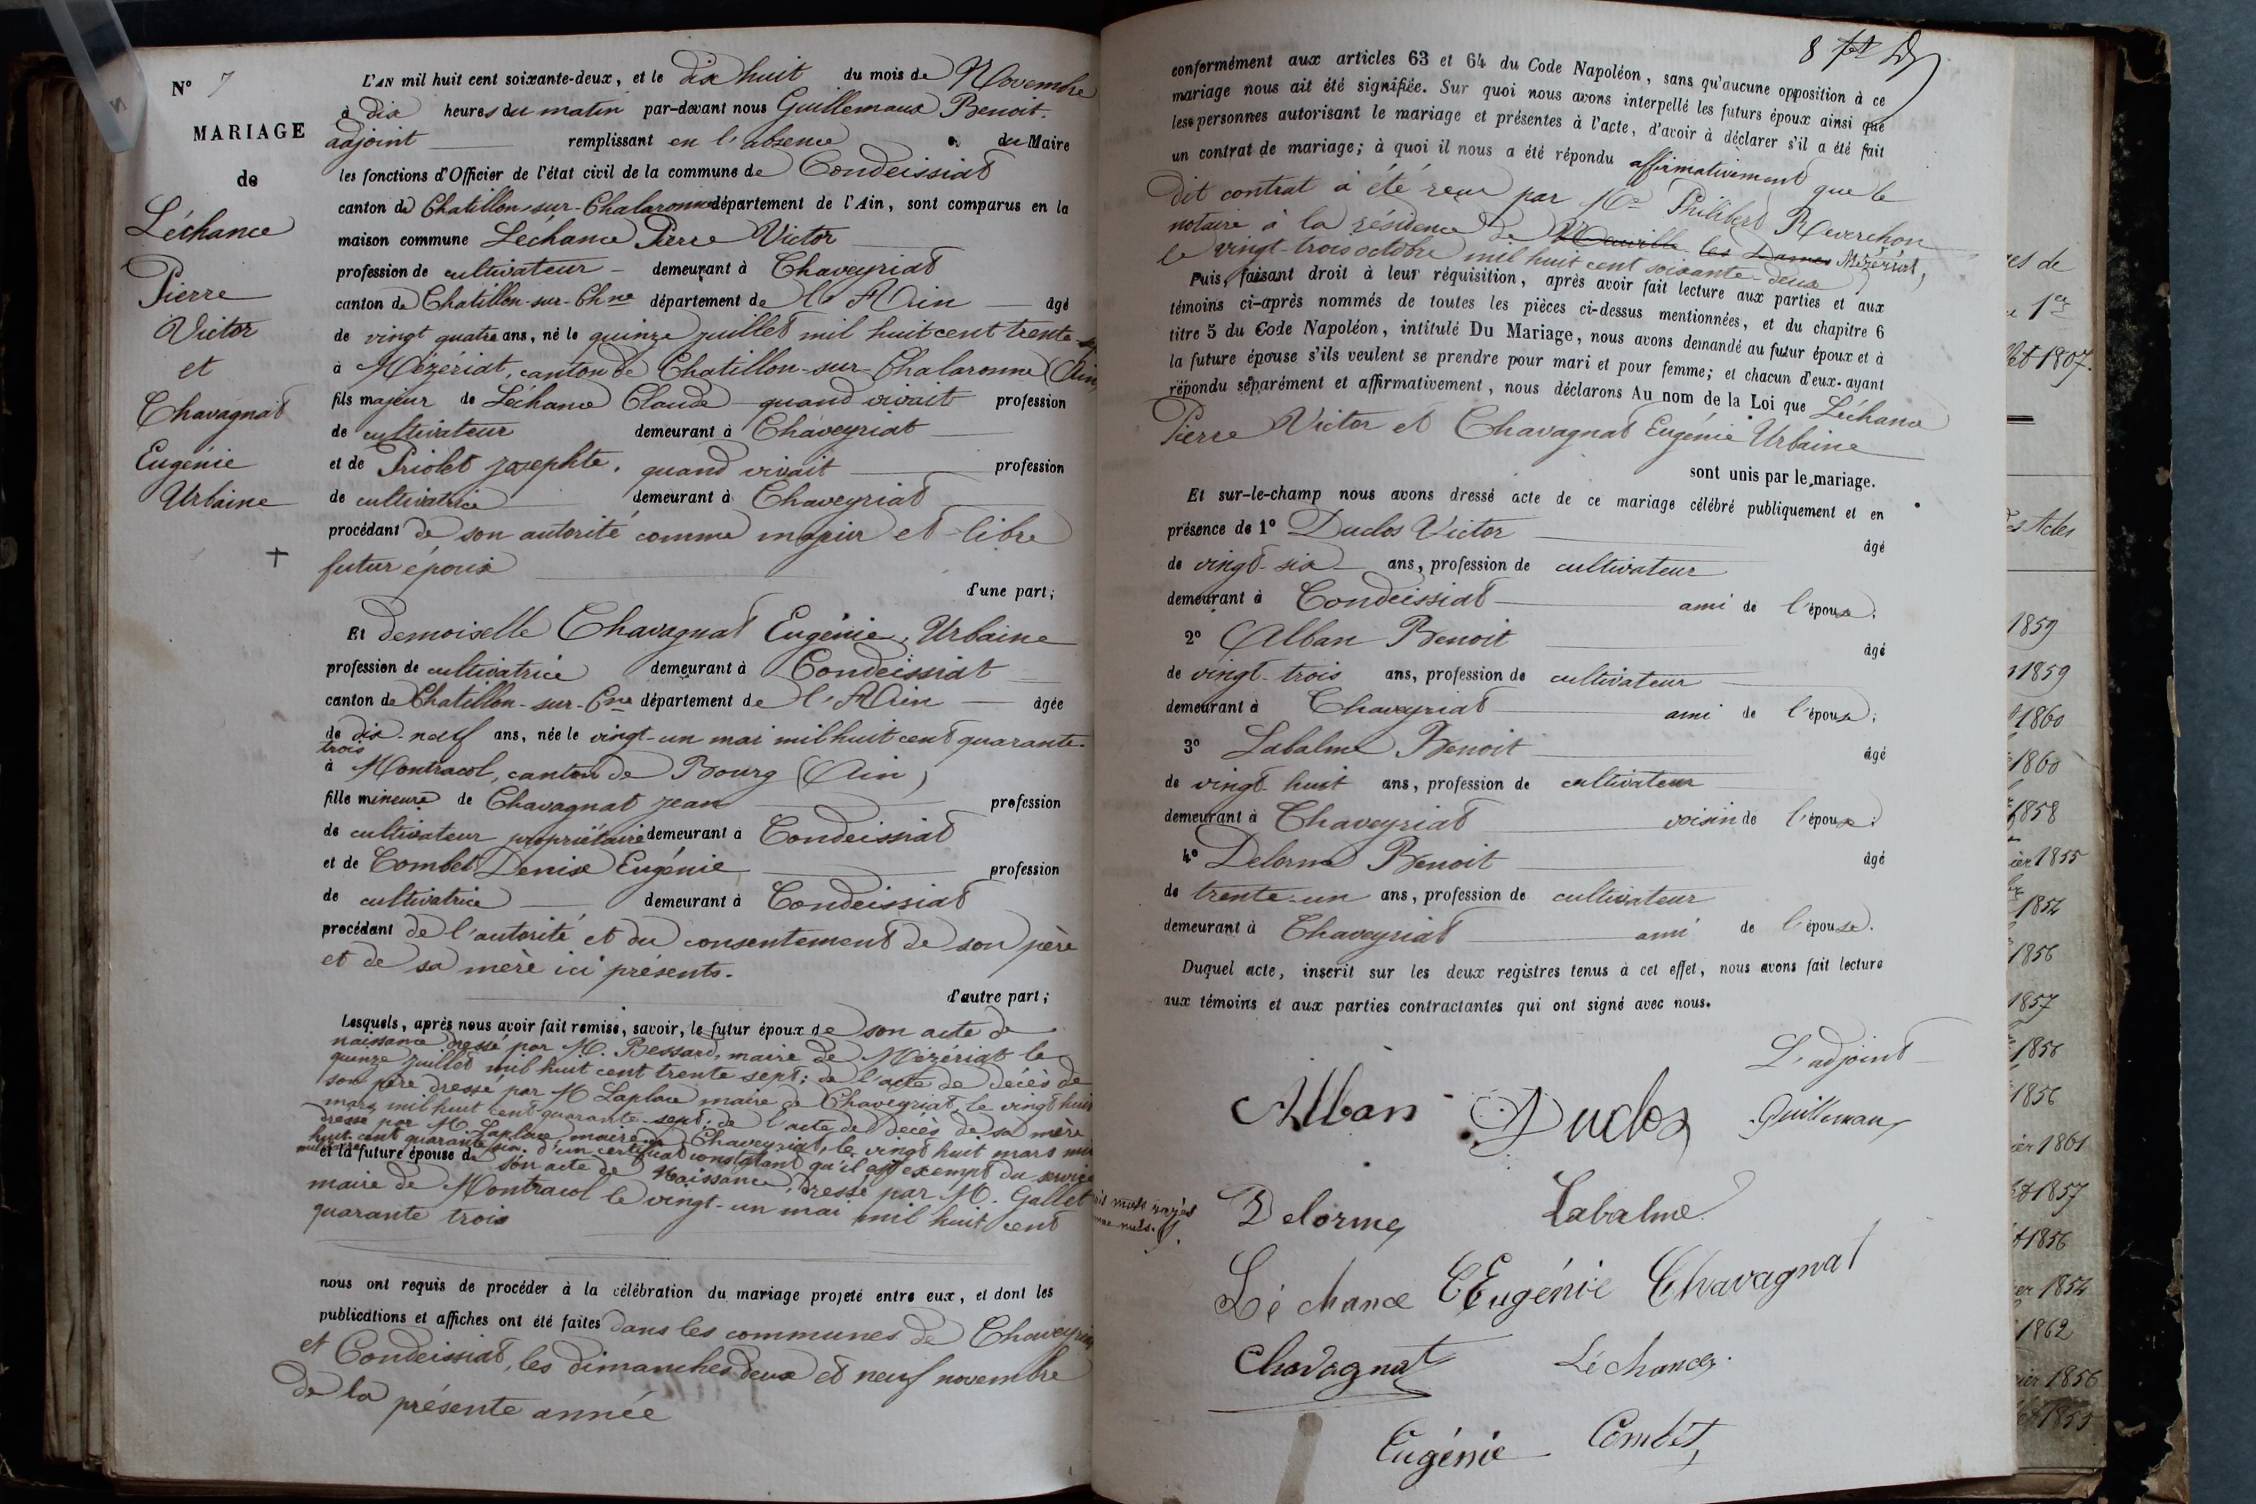 N° 7
MARIAGE
de
Léchance
Pierre
Victor
et
Chavagnat
Eugénie
Urbaine
L'AN mil huit cent soixante-deux, et le dix huit du mois de Novembre
à dix heures du matin par-devant nous Guillemaux Benoit.
adjoint remplissant en l'absence du Maire
les fonctions d'Officier de l'état civil de la commune de Condeissiat
canton de Chatillon-sur-Chalaronne département de l'Ain, sont comparus en la
maison commune Léchance Pierre Victor
profession de cultivateur demeurant à Chaveyriat
canton de Chatillon-sur-Chne département de l'Ain âgé
de vingt quatre ans, né le quinze juillet mil huit cent trente
à Mézériat, canton de Chatillon-sur-Chalaronne (Ain)
fils majeur de Léchance Claude quand vivait profession
de cultivateur demeurant à Chaveyriat
et de Priolet Josephte, quand vivait profession
de cultivatrice demeurant à Chaveyriat
procédant de son autorité comme majeur et libre
futur époux
d'une part;
Et demoiselle Chavagnat Eugénie, Urbaine
profession de cultivatrice demeurant à Condeissiat
canton de Chatillon-sur-Cne département de l'Ain âgée
de dix-neuf ans, née le vingt-un mai mil huit cent quarante-
trois
à Montracol, canton de Bourg (Ain)
fille mineure de Chavagnat Jean profession
de cultivateur propriétaire demeurant à Condeissiat
et de Combet Denise Eugénie profession
de cultivatrice demeurant à Condeissiat
procédant de l'autorité et du consentement de son père
et de sa mère ici présents.
d'autre part;
Lesquels, après nous avoir fait remise, savoir, le futur époux de son acte de
naissance dressé par M. Bessard, maire de Mézériat le
quinze juillet mil huit cent trente sept; de l'acte de décès de
son père dressé par M Laplace maire de Chaveyriat, le vingt huit
mars mil huit cent quarante-sept; de l'acte de décès de sa mère
dressé par M. Laplace, maire de Chaveyriat, le vingt huit mars mil
huit cent quarante d'un certificat constatant qu'il est exempt du service
militaire
et la future épouse de son acte de Naissance, dressé par M. Gallet
maire de Montracol le vingt-un mai mil huit cent
quarante trois
nous ont requis de procéder à la célébration du mariage projeté entre eux, et dont les
publications et affiches ont été faites dans les communes de Chaveyriat
et Condeissiat, les dimanches deux et neuf novembre
de la présente année
8
conformément aux articles 63 et 64 du Code Napoléon, sans qu'aucune opposition à ce
mariage nous ait été signifiée. Sur quoi nous avons interpellé les futurs époux ainsi que
les personnes autorisant le mariage et présentes à l'acte, d'avoir à déclarer s'il a été fait
un contrat de mariage; à quoi il nous a été répondu affirmativement que le
dit contrat a été reçu par Me Philibert Reverchon
notaire à la résidence de Neuville les Dames Mézériat,
le vingt-trois octobre mil huit cent soixante-deux
Puis, faisant droit à leur réquisition, après avoir fait lecture aux parties et aux
témoins ci-après nommés de toutes les pièces ci-dessus mentionnées, et du chapitre 6
titre 5 du Code Napoléon, intitulé Du Mariage, nous avons demandé au futur époux et à
la future épouse s'ils veulent se prendre pour mari et pour femme; et chacun d'eux ayant
répondu séparément et affirmativement, nous déclarons Au nom de la Loi que Léchance
Pierre Victor et Chavagnat Eugénie Urbaine
sont unis par le mariage.
Et sur-le-champ nous avons dressé acte de ce mariage célébré publiquement et en
présence de 1° Duclos Victor âgé
de vingt-six ans, profession de cultivateur
demeurant à Condeissiat ami de l'épouse;
2° Alban Benoit âgé
de vingt-trois ans, profession de cultivateur
demeurant à Chaveyriat ami de l'épouse;
3° Labalme Benoit âgé
de vingt huit ans, profession de cultivateur
demeurant à Chaveyriat voisin de l'épouse;
4° Delorme Benoit âgé
de trente-un ans, profession de cultivateur
demeurant à Chaveyriat ami de l'épouse.
Duquel acte, inscrit sur les deux registres tenus à cet effet, nous avons fait lecture
aux témoins et aux parties contractantes qui ont signé avec nous.
L'adjoint
Alban Duclos Guillemaux
mots rayés
nuls.
Delorme Labalme
Léchance Eugénie Chavagnat
Chavagnat Léchance
Eugénie Combet
es de
1er
et 1807.
es Actes
1859
1859
1860
1860
1858
ier 1855
1852
1856
1857
1856
1856
ier 1861
et 1857
1856
er 1852
1862
ier 1856
1853